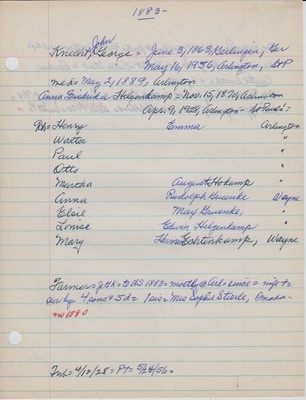 1883-
John
Kniert, George = June 3, 1863, Gerlingen, Ger
May 16, 1956, Arlington, StP
med = May 2, 1889, Arlington
Anna Fredrieka Hilgenkamp = Nov. 15, 1870, Arlington
Apr. 9, 1959, Arlington = St Paul's =
Henry Emma Arlington
Walter "
Paul "
Otto "
Martha August Hokamp "
Anna Rudolph Gruenke Wayne
Elsie Max Gruenke, "
Louise Edwin Hilgenkamp "
Mary Herman Echtenkamp, Wayne
Farmer = G US 1883 = mostly @ Arl = since =
sur by 4 sons + 5 d = 1 sis = Mrs Sophie Stierle, Omaha-
no 1880
Int = 4/12/28 = PT = 5/24/56 =